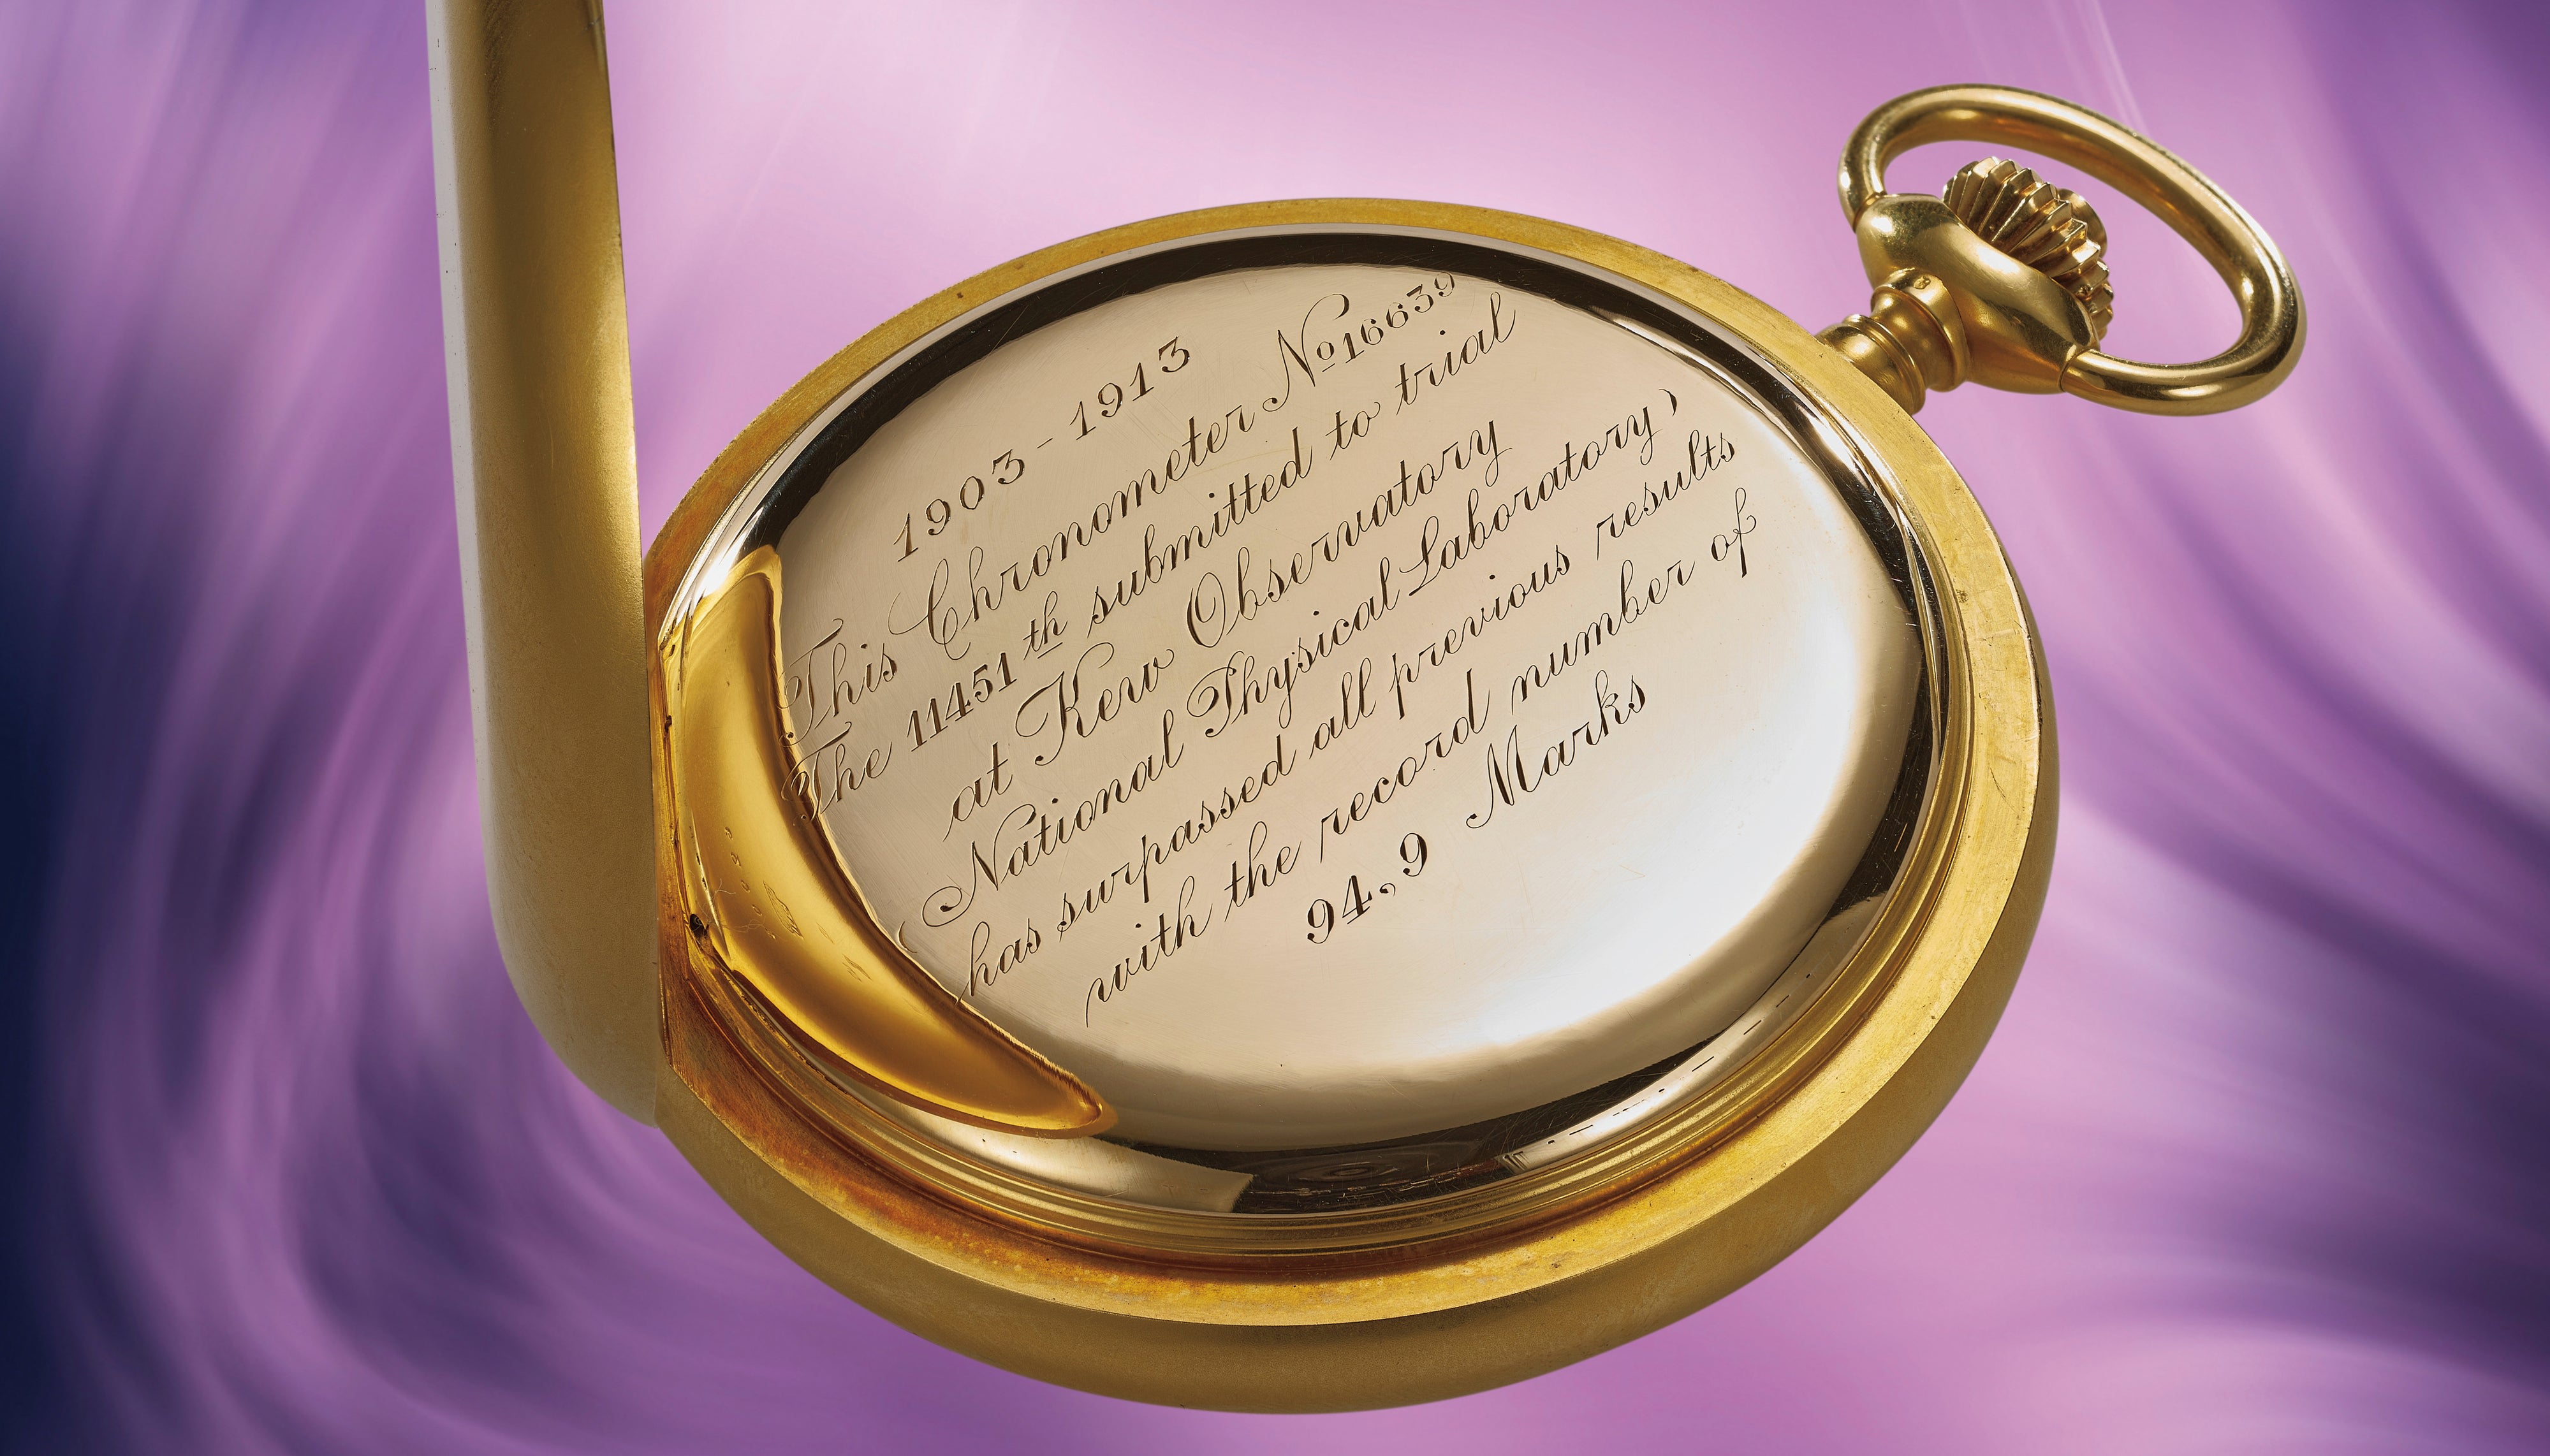 1903 - 1913
This Chronometer No 16639
The 11451 th submitted to trial
at Kew Observatory
(National Physical Laboratory)
has surpassed all previous results
with the record number of
94,9 Marks